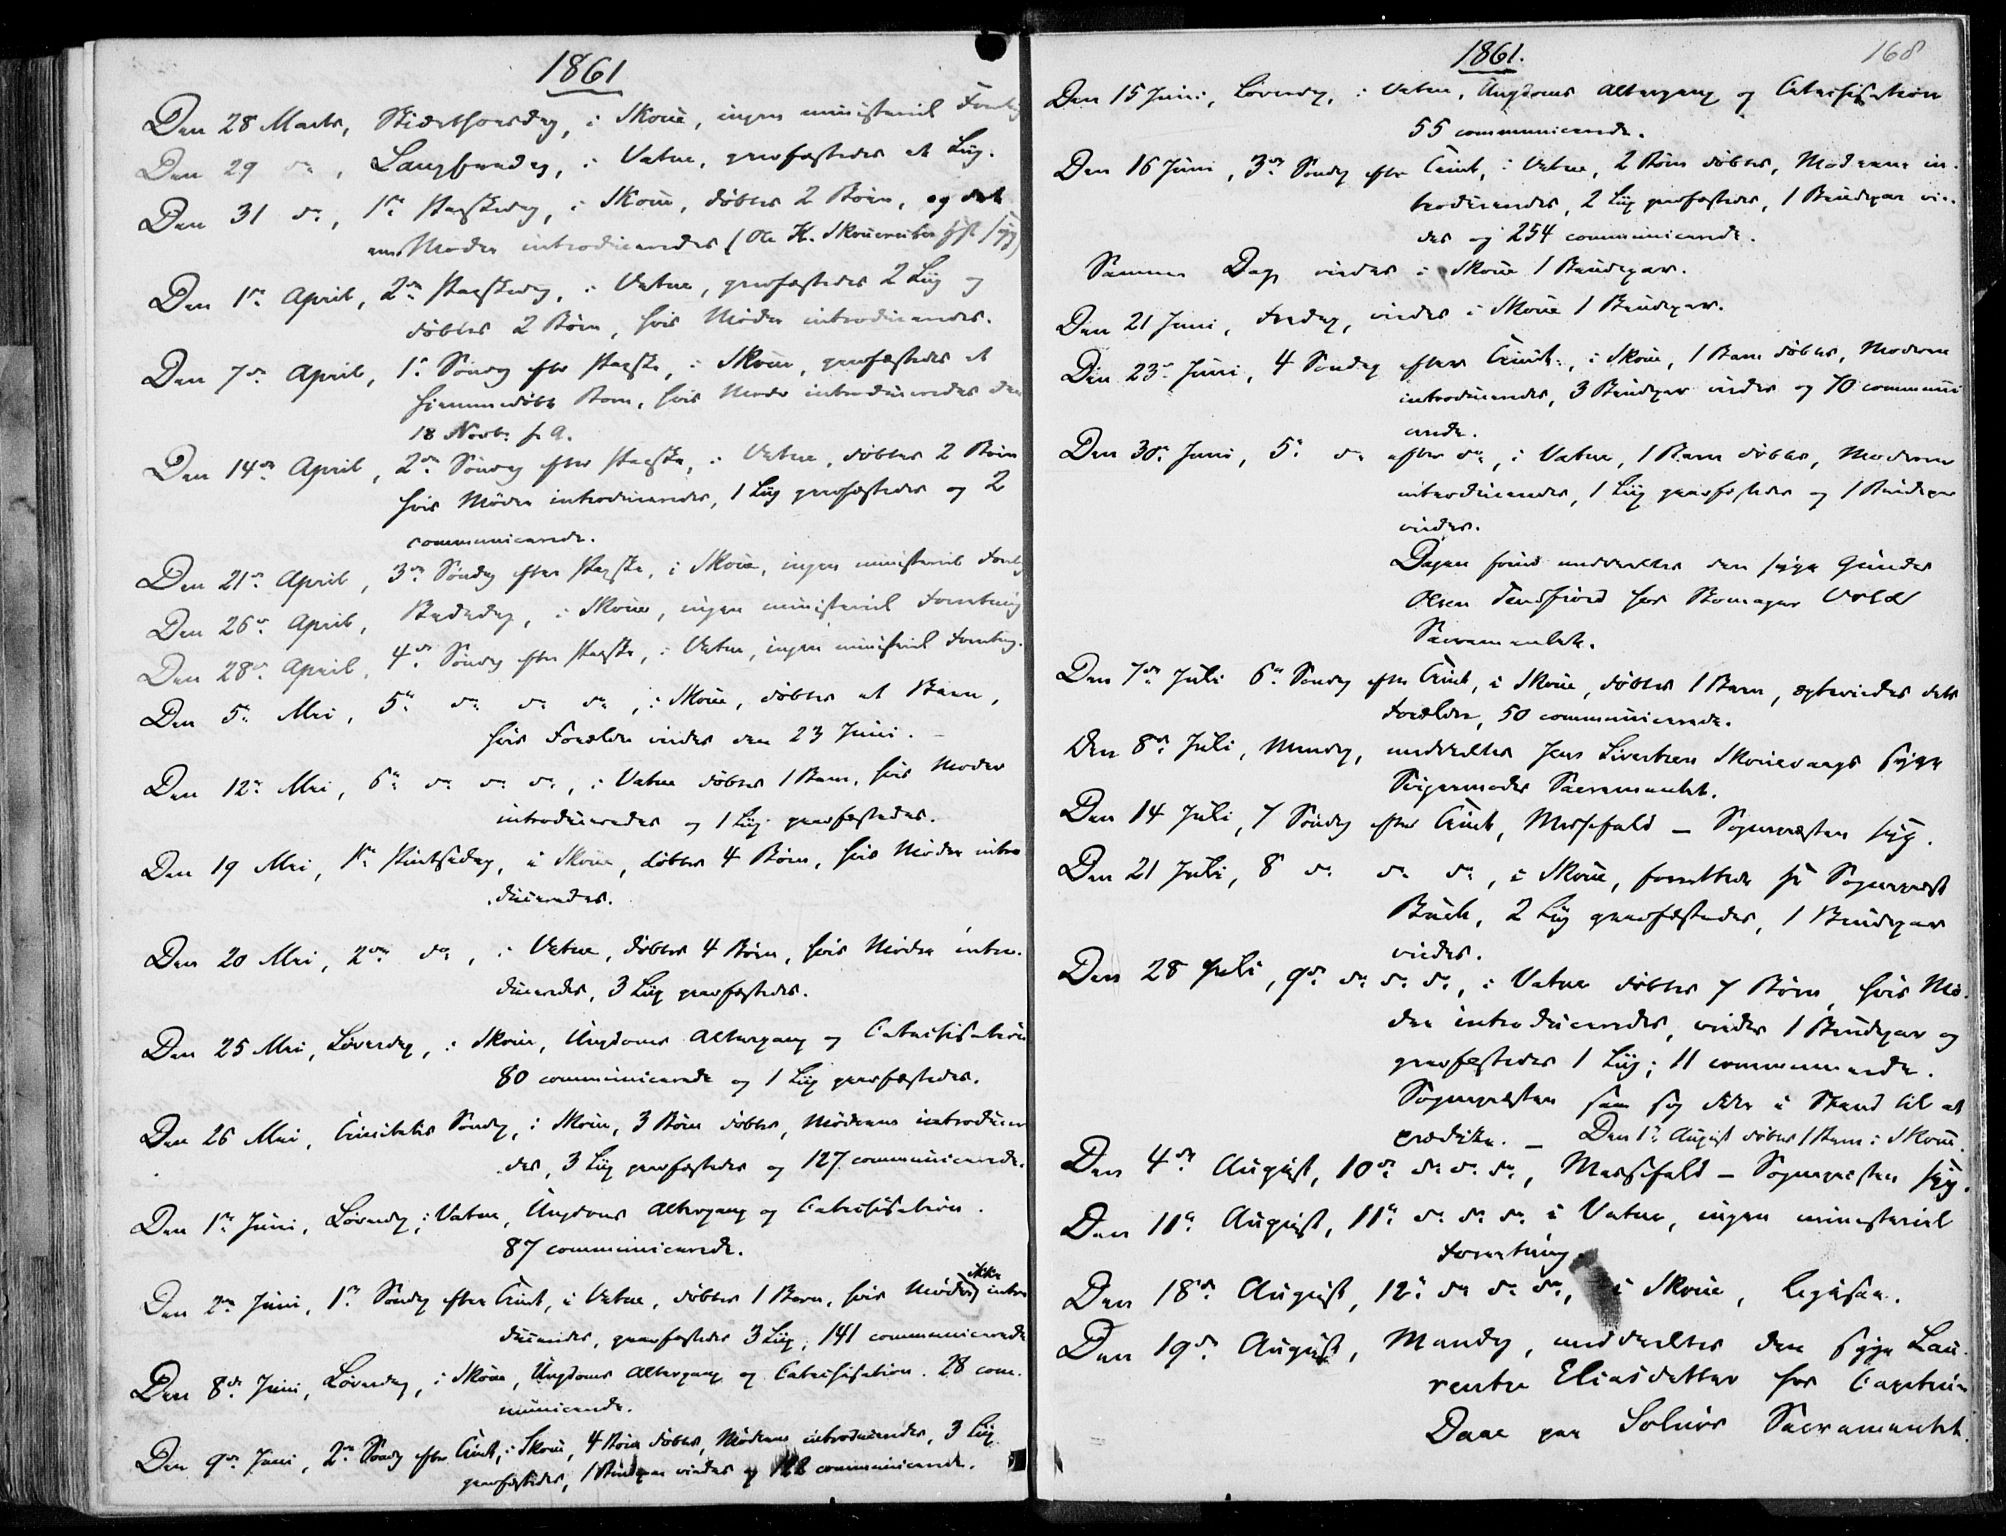 1861
Den 28 Marts, Skidethorsdag, i Skoue, ingen ministeriel Forretn
Den 29 do, Langfredag, i Vatne, gravfæstedes et Liig.
Den 31 do, 1ste Paaskedag, i Skoue, døbtes 2 Børn, og det
enes Moder introduceredes (Ole K. Skouereiten syg)
Den 1ste April, 2den Paaskedag, i Vatne, gravfæstedes 2 Liig og
døbtes 2 Børn, hvis Mødre introduceredes.
Den 7de April, 1ste Søndag efter Paaske, i Skoue, gravfæstedes et
hjemmedøbt Barn, hvis Moder introduceredes den
18 Novbr f. A.
Den 14de April, 2den Søndag efter Paaske, i Vatne, døbtes 2 Børn
hvis Mødre introduceredes, 1 Liig gravfæstedes og 2
communicerede.
Den 21de April, 3die Søndag efter Paaske, i Skoue, ingen ministeriel Forretn
Den 26de April, Bededag, i Skoue, ingen ministeriel Forretning
Den 28de April, 4de Søndag efter Paaske, i Vatne, ingen ministeriel Forretng.
Den 5te Mai, 5te do do do, i Skoue, døbtes et Barn,
hvis Forældre viedes den 23 Juni.
Den 12te Mai, 6te do do do, i Vatne døbtes 1 Barn, hvis Moder
introduceredes og 1 Liig gravfæstedes.
Den 19 Mai, 1ste Pintsedag, i Skoue, døbtes 4 Børn, hvis Mødre intro
duceredes.
Den 20 Mai, 2den do, i Vatne, døbtes 4 Børn, hvis Mødre intro-
duceredes, 3 Liig gravfæstedes.
Den 25 Mai, Løverdag, i Skoue, Ungdoms Altergang og Catechisation
80 communicerede og 1 Liig gravfæstedes.
Den 26 Mai, Trinitatis Søndag, i Skoue, 3 Børn døbtes, Mødrene introducere
des, 3 Liig gravfæstedes og 127 communicerede.
Den 1ste Juni, Løverdag, i Vatne, Ungdoms Altergang og Catechisation.
87 communicerede.
Den 2den Juni, 1ste Søndag efter Trinit, i Vatne, døbtes 1 Barn, hvis Moder ikke intro
duceredes, gravfæstedes 3 Liig; 141 communicerede
Den 8de Juni, Løverdag, i Skoue, Ungdoms Altergang og Catechisation. 28 com-
municerede.
Den 9de Juni, 2den Søndag efter Trinit, i Skoue, 4 Børn døbtes, Mødrene introduceredes, 3 Liig
gravfæstedes, 1 Brudepar viedes og communicerede.
1861.
168
Den 15 Juni, Løverdag, i Vatne, Ungdoms Altergang og Catechisation
55 communicerede.
Den 16 Juni, 3die Søndag efter Trinit, i Vatne, 2 Børn døbtes, Mødrene in-
troduceredes, 2 Liig gravfæstedes, 1 Brudepar vie-
des og 254 communicerede.
Samme Dag viedes i Skoue 1 Brudepar.
Den 21 Juni, Fredag, viedes i Skoue 1 Brudepar.
Den 23de Juni, 4 Søndag efter Trinit., i Skoue, 1 Barn døbtes, Moderen
introduceredes, 3 Brudepar viedes og 70 communi
cerede.
Den 30te Juni, 5te do efter do, i Vatne, 1 Barn døbtes, Moderen
introduceredes, 1 Liig gravfæstedes og 1 Brudepar
viedes.
Dagen forud meddeeltes den syge Gunder
Olsen Tennfiord hos Stomager Vold
Sacramentet.
Den 7de Juli 6te Søndag efter Trinit, i Skoue, døbtes 1 Barn, ægteviedes dets
Forældre, 50 communicerede.
Den 8de Juli, Mandag, meddeeltes Jens Sivertsen Skouevaags syge
Svigermoder Sacramentet.
Den 14 Juli, 7 Søndag efter Trinit, Messefald – Sognepræsten syg.
Den 21 Juli, 8 do do do, i Skoue, forrettede hr Sognepræst
Buch, 2 Liig gravfæstedes, 1 Brudepar
viedes.
Den 28 Juli, 9de do do do, i Vatne døbtes 7 Børn, hvis Mø-
dre introduceredes, viedes 1 Brudepar og
gravfæstedes 1 Liig; 11 communicerede.
Sognepræsten saae sig ikke i Stand til at
prædike. – Den 1ste August døbtes 1 Barn i Skoue.
Den 4de August, 10de do do do, Messefald – Sognepræsten syg.
Den 11te August, 11te do do do i Vatne, ingen ministeriel
Forretning.
Den 18de August, 12te do do do, i Skoue, ligesaa.
Den 19de August, Mandag, meddeeltes den syge Lau-
rentse Eliasdatter hos Captein
Daae paa Solnør Sacramentet.